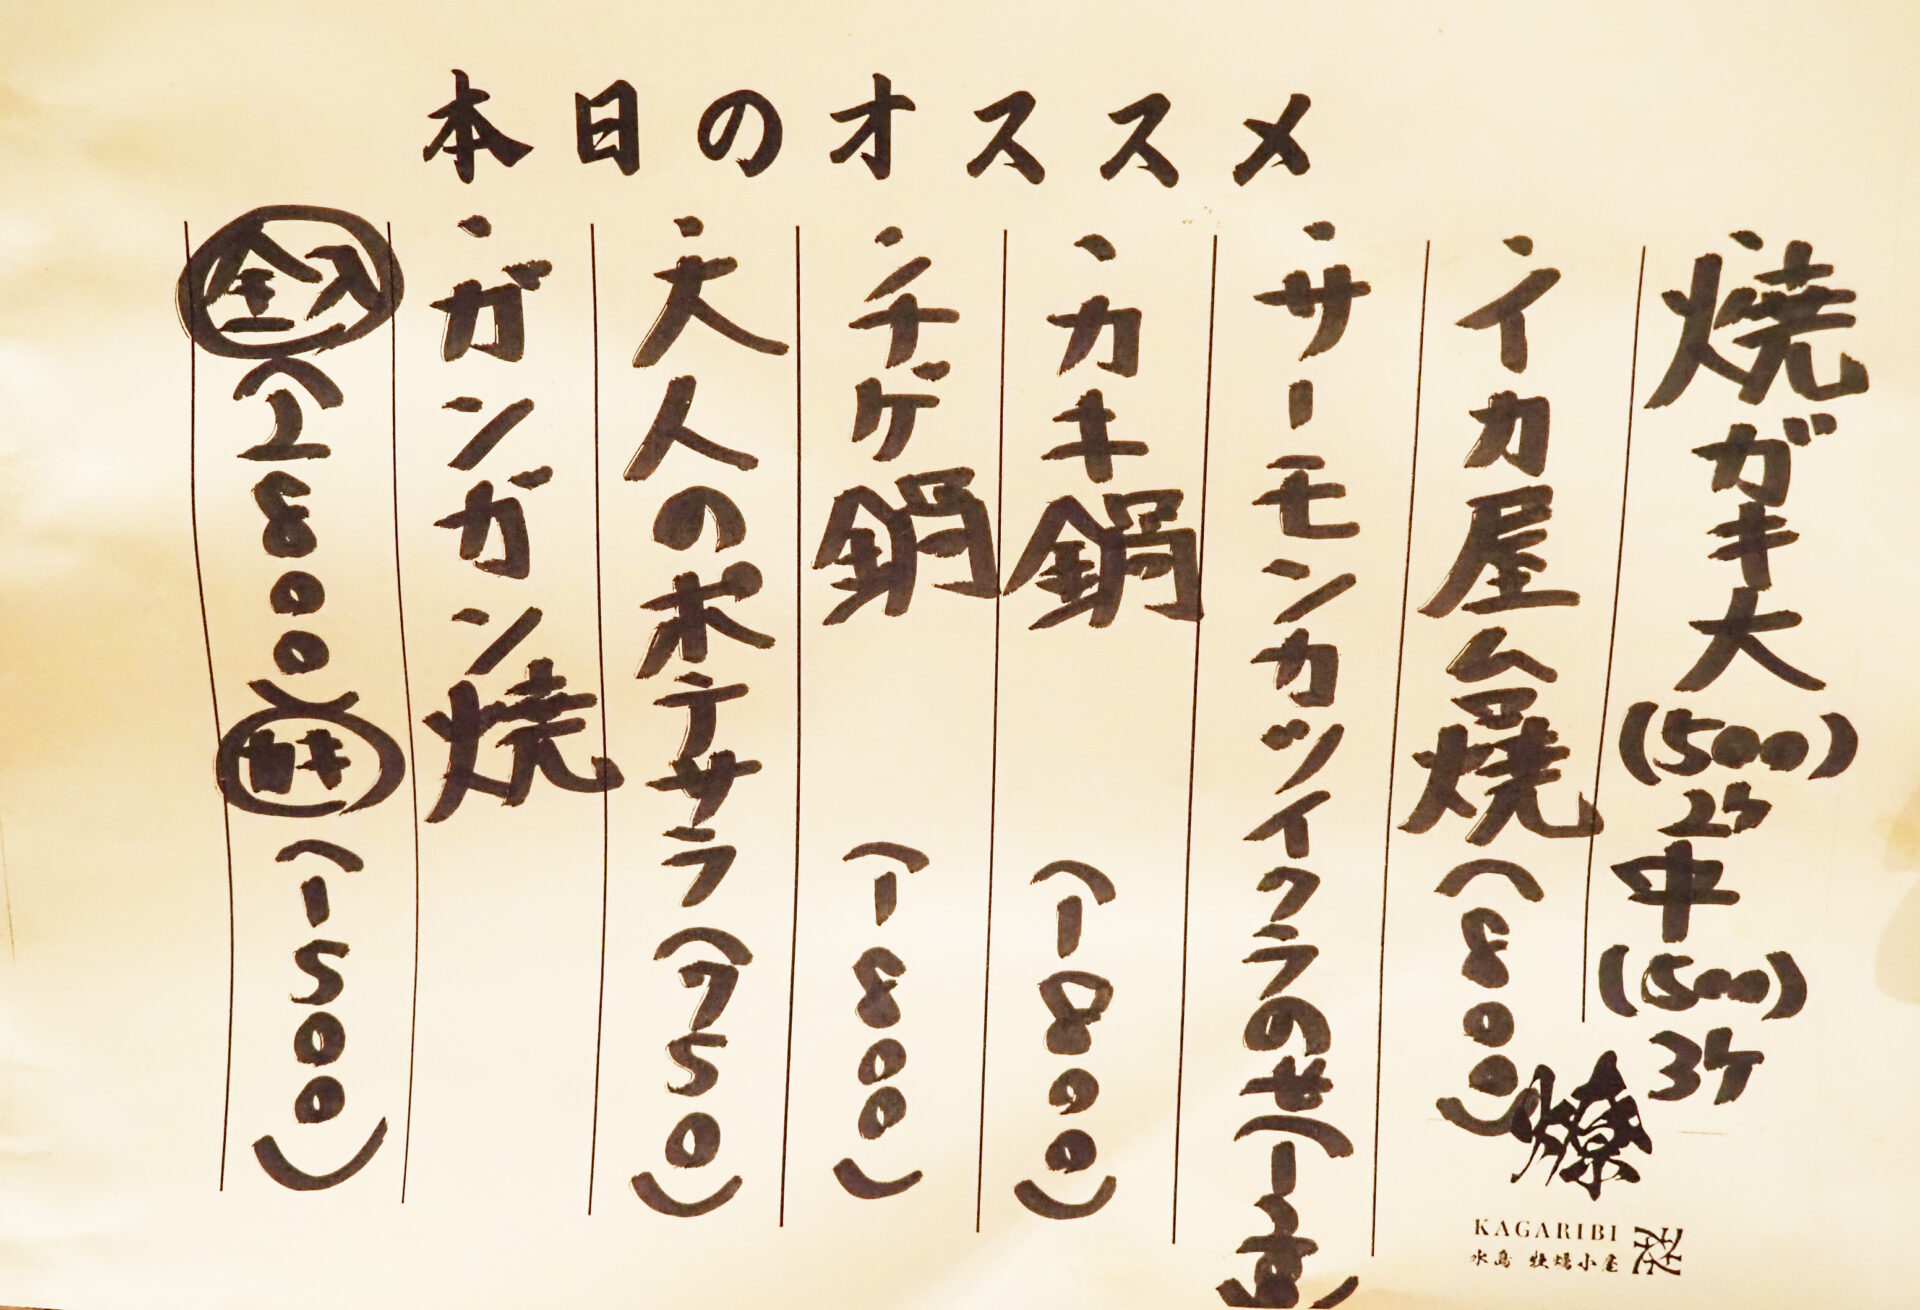 本日のオススメ
・焼ガキ大(500)2ケ中(500)3ケ
・イカ屋台焼(800)
・サーモンカツイクラのせ(1
・カキ鍋(1800)
・チゲ鍋(1800)
・大人のポテサラ(750)
・ガンガン焼
全入(2800)カキ(1500)
燎
KAGARIBI
水島 牡蠣小屋